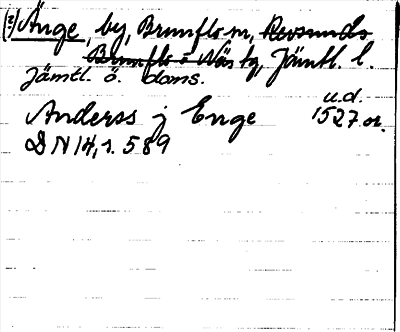 (2) Änge, by, Brunflo sn, Revsunds
Brunflo o Näs tg, Jämtl. l.
Jämtl. ö. doms.
u.d.
Anderss j Enge 1527 or.
DN 14, s. 589